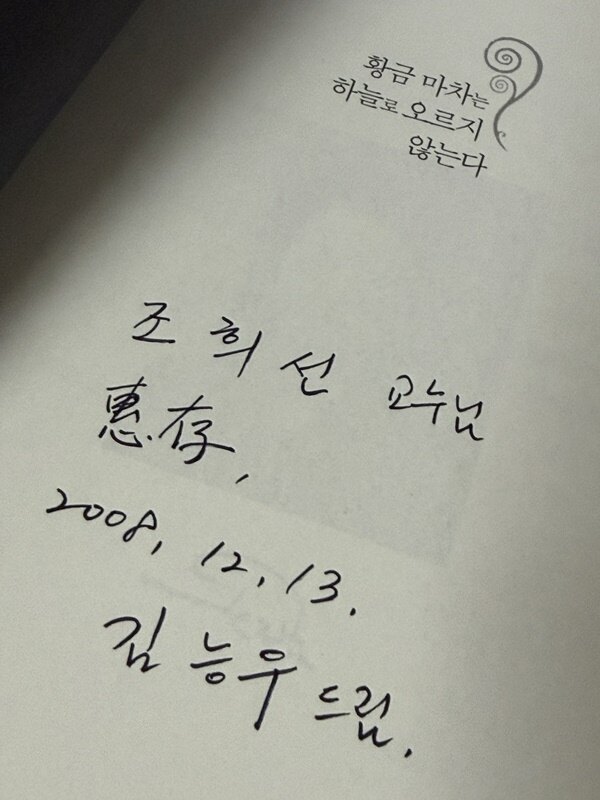 황금 마차는
하늘로 오르지
않는다
조희선 교수님
惠存,
2008, 12, 13.
김능우 드림.